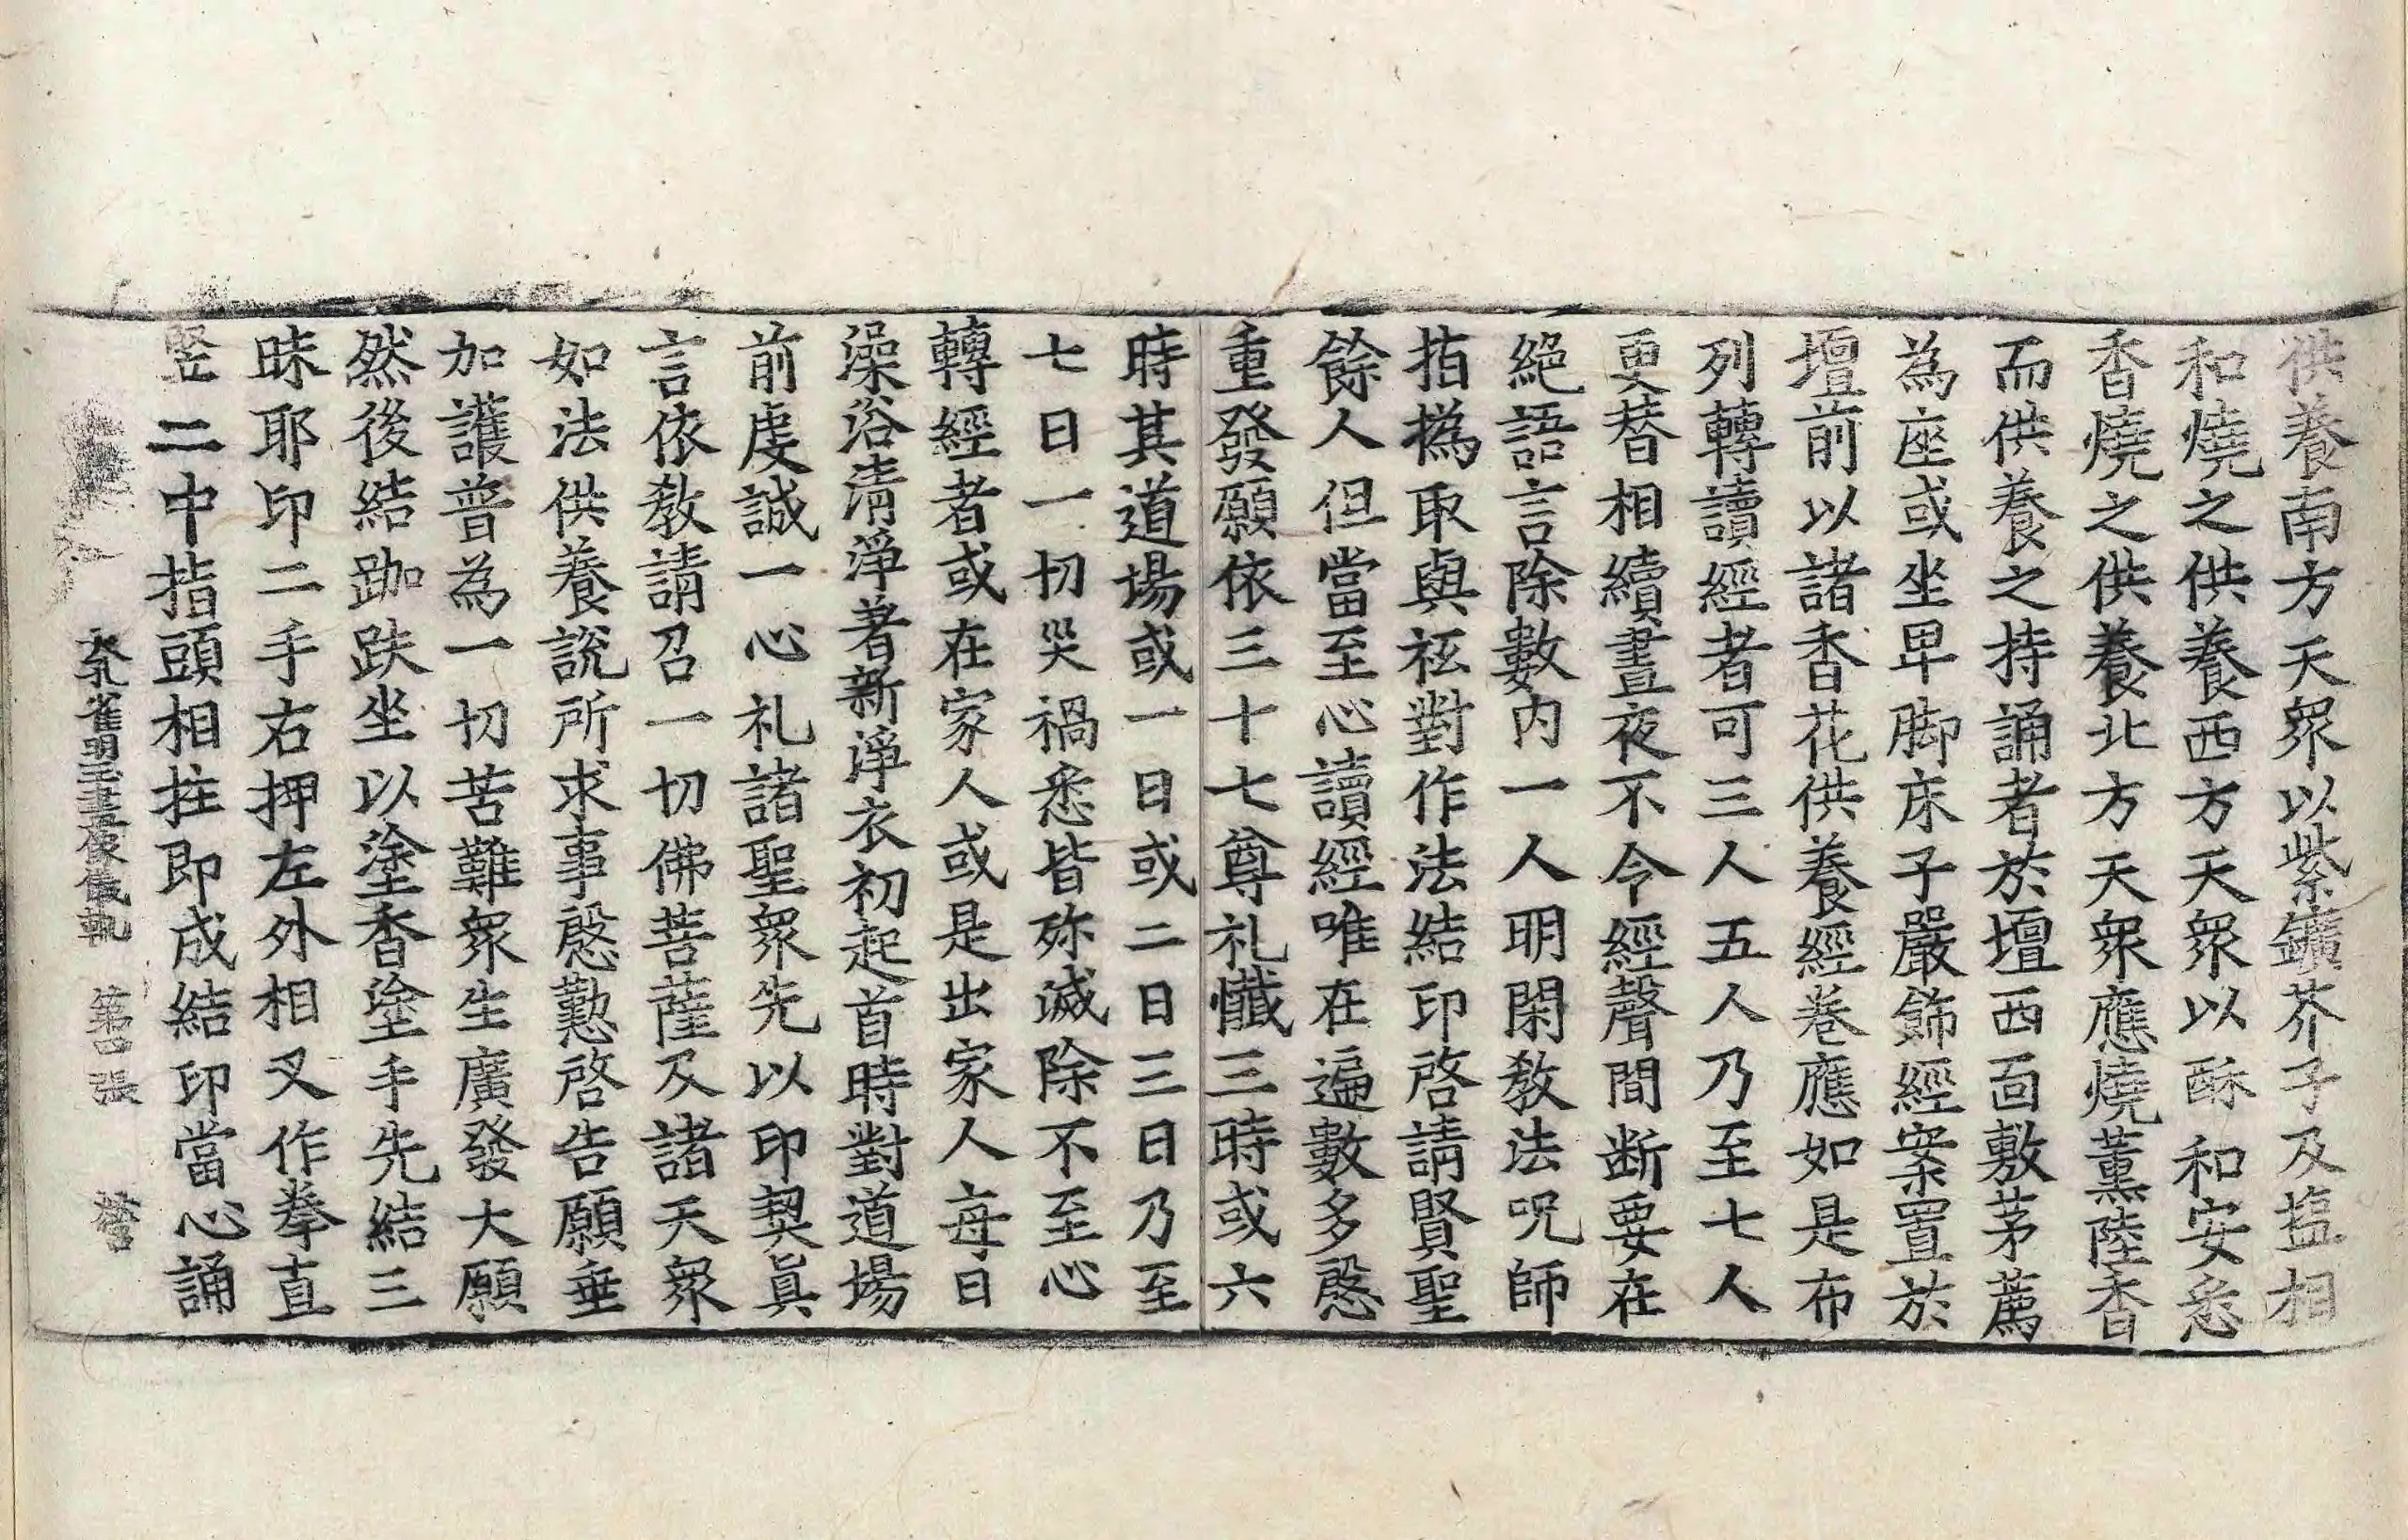 供養南方天衆以紫鑛芥子及塩相
和燒之供養西方天衆以酥和安悉
香燒之供養北方天衆應燒薰陸香
而供養之持誦者於壇西面敷茅薦
為座或坐卑脚床子嚴飾經案置於
壇前以諸香花供養經卷應如是布
列轉讀經者可三人五人乃至七人
更替相續晝夜不令經聲間断要在
絕語言除數內一人明閑教法呪師
指撝取與祗對作法結印啓請賢聖
餘人但當至心讀經唯在遍數多慇
重發願依三十七尊礼懺三時或六
時其道場或一日或二日三日乃至
七日一切災禍悉皆殄滅除不至心
轉經者或在家人或是出家人每日
澡浴清淨著新淨衣初起首時對道場
前虔誠一心礼諸聖衆先以印契眞
言依教請召一切佛菩薩及諸天衆
如法供養說所求事慇懃啓告願垂
加護普為一切苦難衆生廣發大願
然後結跏趺坐以塗香塗手先結三
昧耶印二手右押左外相叉作拳直
竪二中指頭相拄即成結印當心誦
大孔雀明王畫像儀軌　第四張